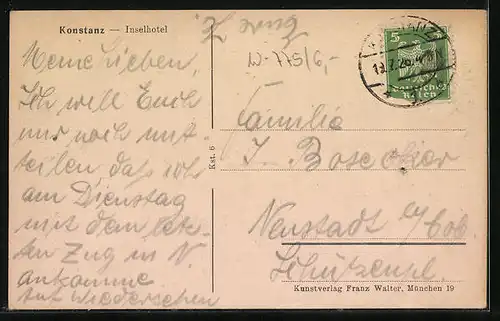 Konstanz — Inselhotel
Meine Lieben,
Ich will Euch
nur noch mit-
teilen daß ich
am Dienstag
mit dem letz-
ten Zug in N.
ankomme.
Auf Wiedersehen
W-775/6,-
KONSTANZ
5
Deutsches
Reich
Familie
J. Bosecker
Neustadt a/Cob.
Schützenpl.
Kst. 6
Kunstverlag Franz Walter, München 19